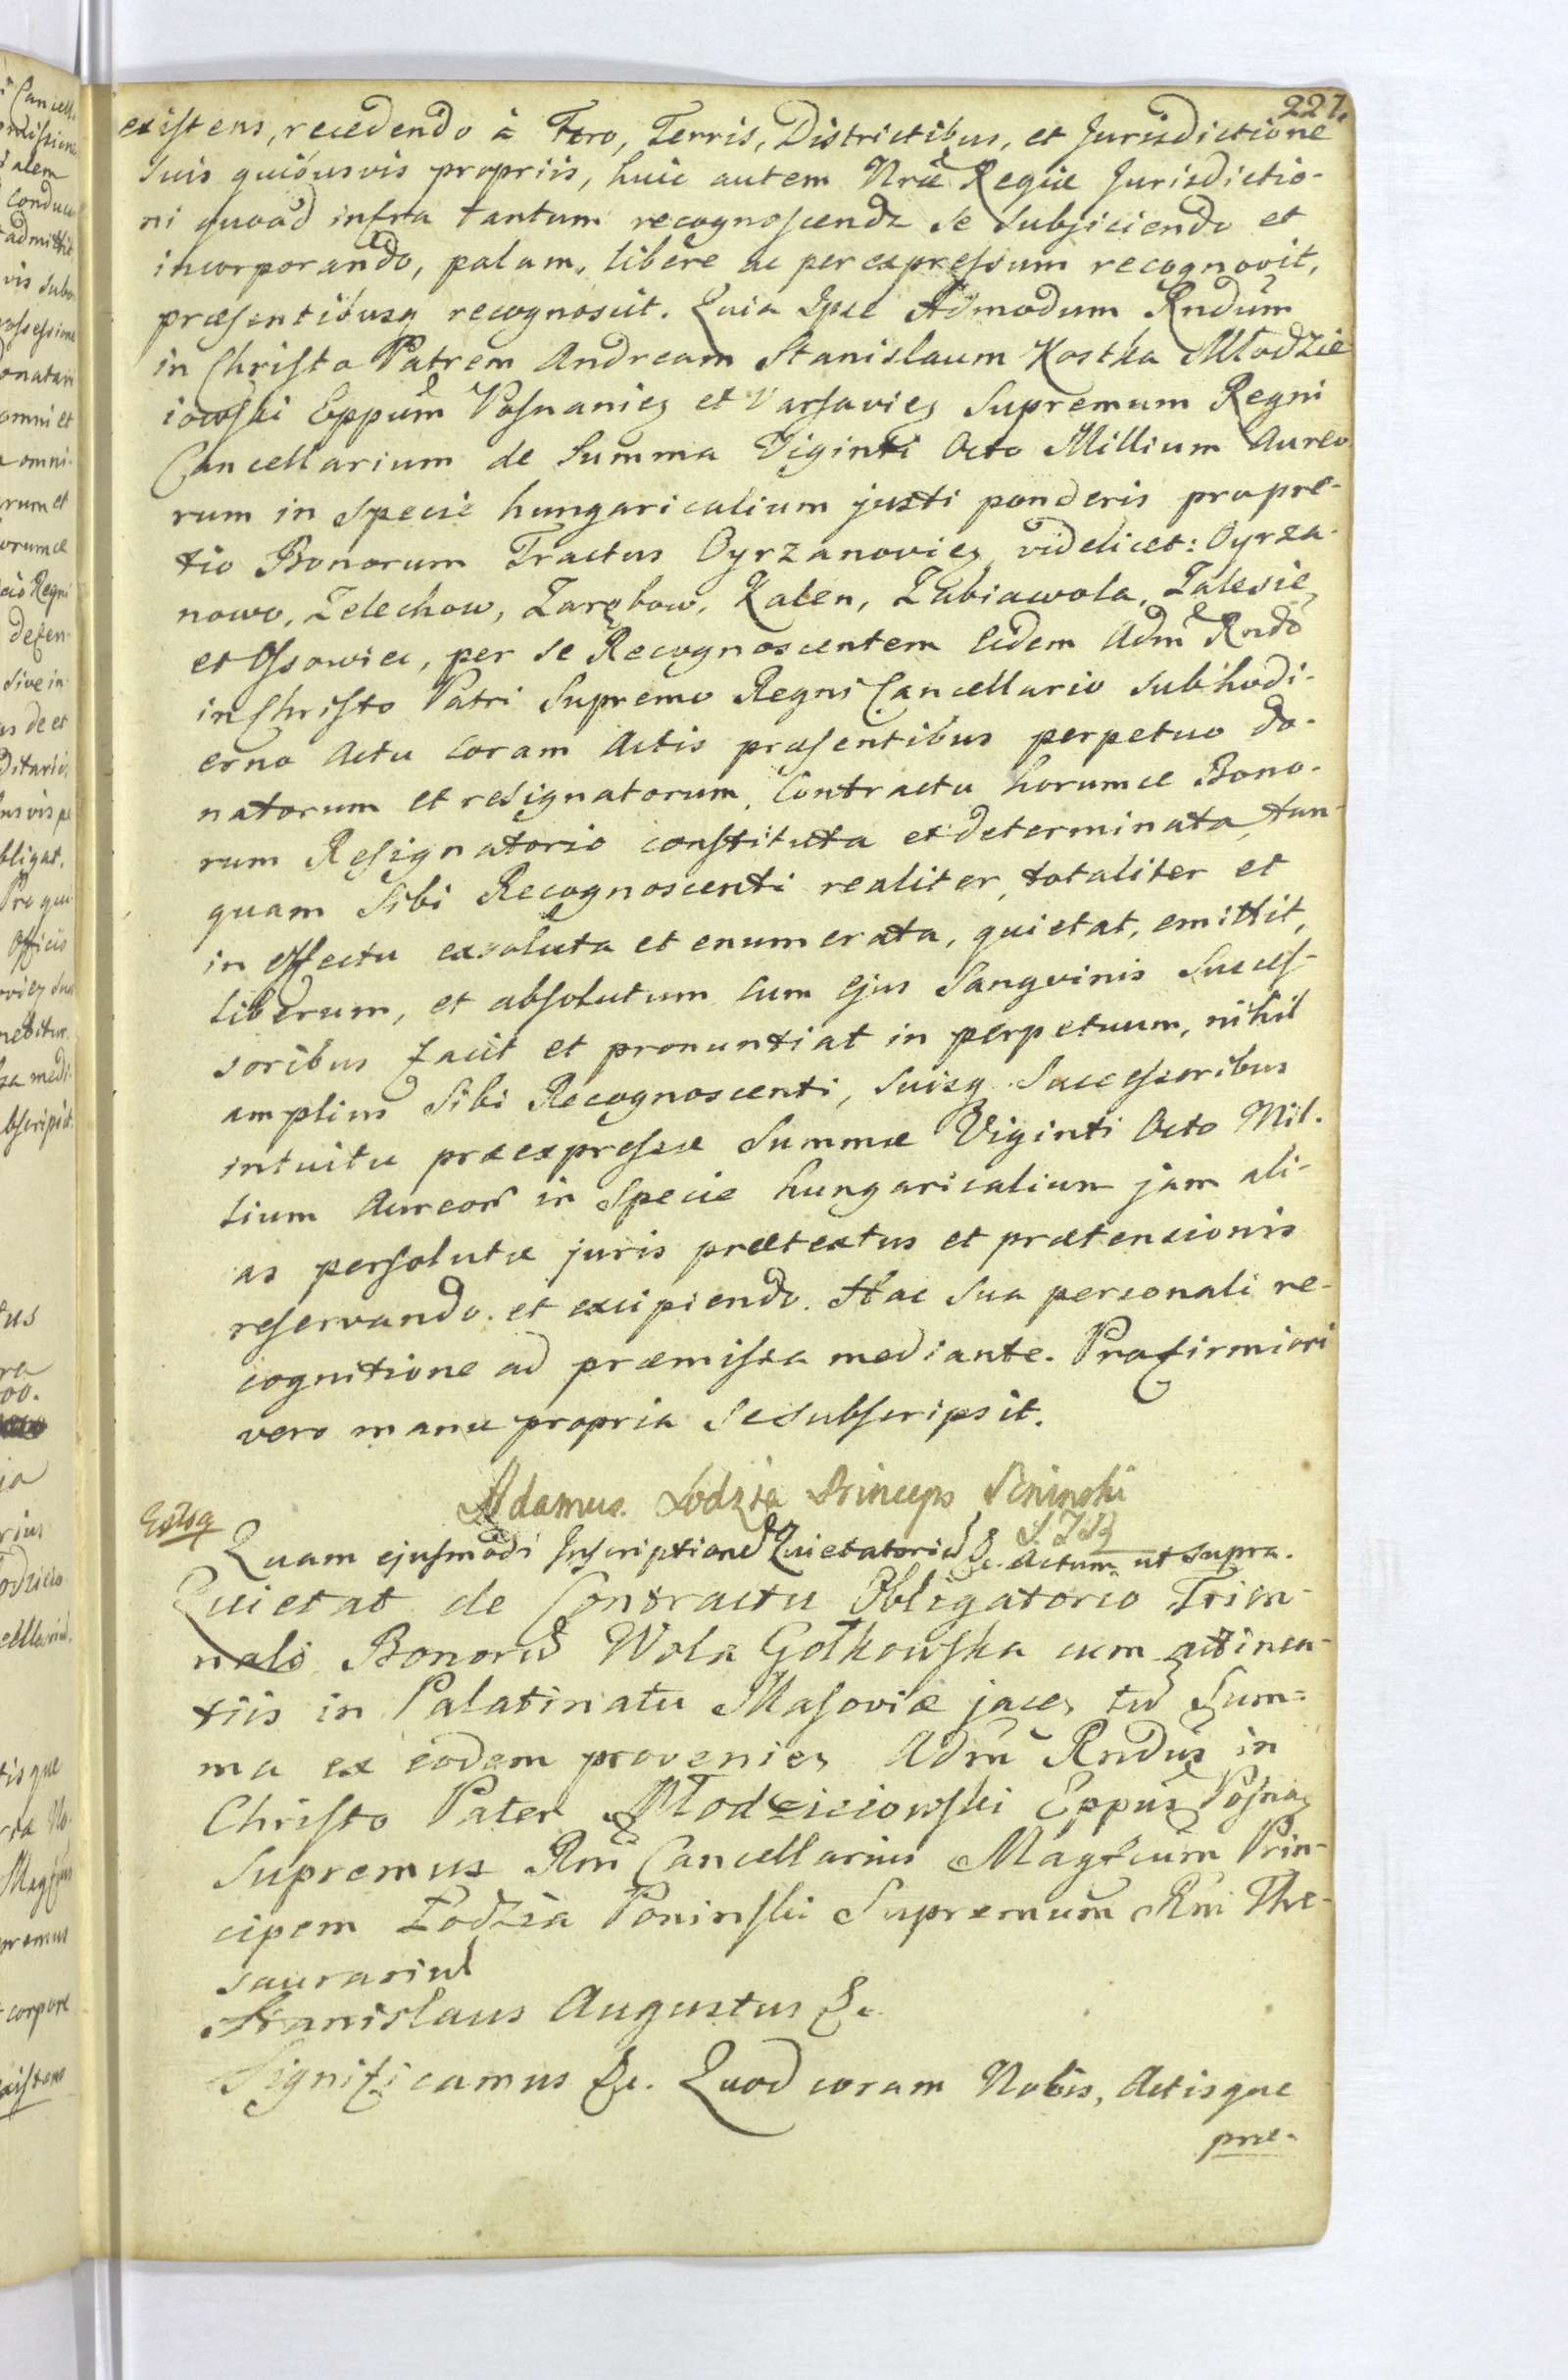 227.
existens, recedendo à Foro, Terris, Districtibus, et Jurisdictione
suis quibusvis propriis, huic autem Nrae Regiae Jurisdictio-
ni quoad infra tantum recognoscenda se subjiciendo et
incorporando, palam, libere ac per expressum recognovit,
praesentibusq recognoscit. Quia Ipse Admodum Rndum
in Christo Patrem Andream Stanislaum Kostka Młodzie
iowski Eppum Posnaniez et Varsaviez Supremum Regni
Cancellarium de Summa Viginti Octo Millium Aureo
rum in specie hungaricalium justi ponderis pro pre-
tio Bonorum Tractus Oyrzanoviez videlicet: Oyrza-
nowo, Zelechow, Zarębow, Kalen, Zabiawola, Zalesie,
et Ossowiec, per se Recognoscentem Eidem Adm Rndo
in Christo Patri Supremo Regni Cancellario sub hodi-
erno Actu coram Actis praesentibus perpetuo do-
natorum et resignatorum, Contractu horumce Bono-
rum Resignatorio constituta et determinata, tan-
quam sibi Recognoscenti realiter, totaliter et
in effectu exsoluta et enumerata, quietat, emittit,
liberum, et absolutum cum ejus Sangvinis Succes-
soribus facit et pronuntiat in perpetuum, nihil
amplius sibi Recognoscenti, suisq Successoribus
intuitu praeexpressae Summae Viginti Octo Mil-
lium Aureor in specie hungaricalium jam ali-
as persolutae juris praetextus et praetensionis
reservando et excipiendo. Hac sua personali re-
cognitione ad praemissa mediante. Pro firmiori
vero manu propria se subscripsit.
Adamus Lodzia Princeps Poninski
Quam ejusmodi Inscriptione Quietatoria &c. Actum ut supra.
Quietat de Contractu Obligatorio Trien-
nali Bonorum Wola Gołkowska cum attinen-
tiis in Palatinatu Masoviae jacen tu Sum-
ma ex eodem provenien Adm Rndus in
Christo Pater Młodzieiowski Eppus Posnaz
Supremus Rni Cancellarius Magfcum Prin-
cipem Łodzia Poninski Supremum Rni The-
saurarium
Stanislaus Augustus &c.
Significamus &c. Quod coram Nobis, Actisque
prae-